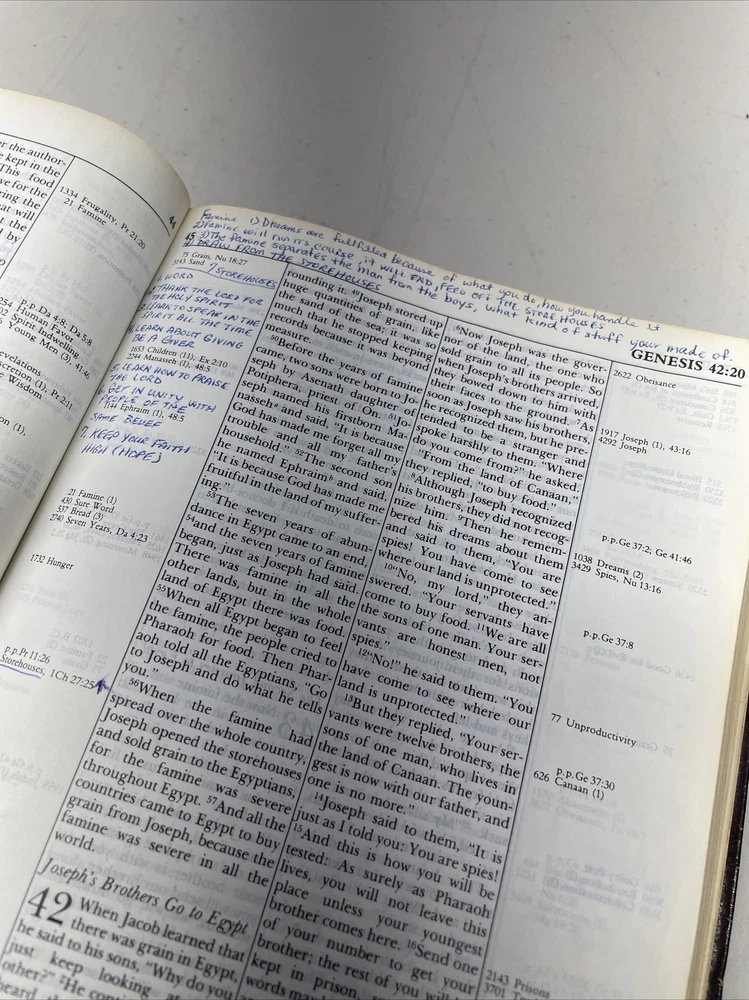 er the author-
e kept in the
This food
ve for the
ring the
at will
d by
1334 Frugality, Pr 21:20
21 Famine
p.p. Da 4:8; Da 5:8
Human Favor
Spirit Indwelling
Young Men (3), 41:46
evelations
cretion (1), Pr 2:11
Wisdom
on (1).
Famine 1) Dreams are fullfilled because of what you do, how you handle it
2) Famine will run its course it will END, FEED OFF THE STOREHOUSES
3) The famine separates the man from the boys, what kind of stuff your made of.
4) DRAW FROM THE STOREHOUSES
GENESIS 42:20
75 Grain, Nu 18:27
3143 Sand
7 STOREHOUSES
1. WORD
2. THANK THE LORD FOR
THE HOLY SPIRIT
3. LEARN TO SPEAK IN THE
SPIRIT ALL THE TIME
4. LEARN ABOUT GIVING
BE A GIVER
1653 Children (11), Ex 2:10
2244 Manasseh (1), 48:5
5. LEARN HOW TO PRAISE
THE LORD
6. GET IN UNITY WITH
PEOPLE OF THE
1144 Ephraim (1), 48:5
SAME BELIEF
7. KEEP YOUR FAITH
HIGH (HOPE)
21 Famine (1)
430 Sure Word
537 Bread (3)
2740 Seven Years, Da 4:23
1732 Hunger
p.p. Pr 11:26
Storehouses, 1Ch 27:25
rounding it. 49Joseph stored up
huge quantities of grain, like
the sand of the sea; it was so
much that he stopped keeping
records because it was beyond
measure.
50Before the years of famine
came, two sons were born to Jo-
seph by Asenath daughter of
Potiphera, priest of On. 51Jo-
seph named his firstborn Ma-
nasseh and said, "It is because
God has made me forget all my
trouble and all my father's
household." 52The second son
he named Ephraim and said,
"It is because God has made me
fruitful in the land of my suffer-
ing."
53The seven years of abun-
dance in Egypt came to an end,
54and the seven years of famine
began, just as Joseph had said.
There was famine in all the
other lands, but in the whole
land of Egypt there was food.
55When all Egypt began to feel
the famine, the people cried to
Pharaoh for food. Then Phar-
aoh told all the Egyptians, "Go
to Joseph and do what he tells
you."
56When the famine had
spread over the whole country,
Joseph opened the storehouses
and sold grain to the Egyptians,
for the famine was severe
throughout Egypt. 57And all the
countries came to Egypt to buy
grain from Joseph, because the
famine was severe in all the
world.
Joseph's Brothers Go to Egypt
42 When Jacob learned that
there was grain in Egypt,
he said to his sons, "Why do you
just keep looking at
other?" 2He conti
heard th
6Now Joseph was the gover-
nor of the land, the one who
sold grain to all its people. So
when Joseph's brothers arrived,
they bowed down to him with
their faces to the ground. 7As
soon as Joseph saw his brothers,
he recognized them, but he pre-
tended to be a stranger and
spoke harshly to them. "Where
do you come from?" he asked.
"From the land of Canaan,"
they replied, "to buy food."
8Although Joseph recognized
his brothers, they did not recog-
nize him. 9Then he remem-
bered his dreams about them
and said to them, "You are
spies! You have come to see
where our land is unprotected."
10"No, my lord," they an-
swered. "Your servants have
come to buy food. 11We are all
the sons of one man. Your ser-
vants are honest men, not
spies."
12"No!" he said to them. "You
have come to see where our
land is unprotected."
13But they replied, "Your ser-
vants were twelve brothers, the
sons of one man, who lives in
the land of Canaan. The youn-
gest is now with our father, and
one is no more."
14Joseph said to them, "It is
just as I told you: You are spies!
15And this is how you will be
tested: As surely as Pharaoh
lives, you will not leave this
place unless your youngest
brother comes here. 16Send one
of your number to get your
brother; the rest of you will
kept in prison,
words may
2622 Obeisance
1917 Joseph (1), 43:16
4292 Joseph
p.p. Ge 37:2; Ge 41:46
1038 Dreams (2)
3429 Spies, Nu 13:16
p.p. Ge 37:8
77 Unproductivity
p.p. Ge 37:30
626 Canaan (1)
2143 Prisons
3701